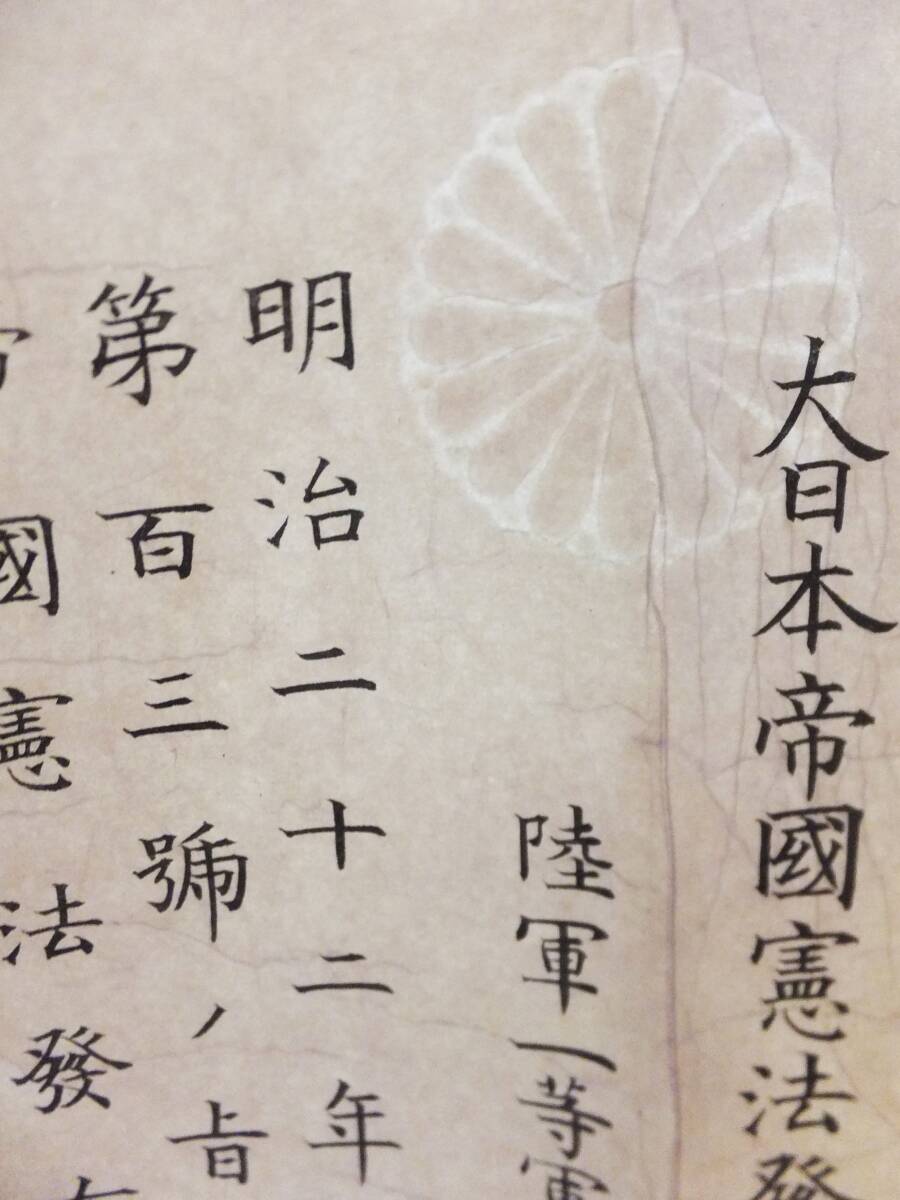 大日本帝國憲法發
陸軍一等軍
明治二十二年
第百三號ノ旨
國憲法發